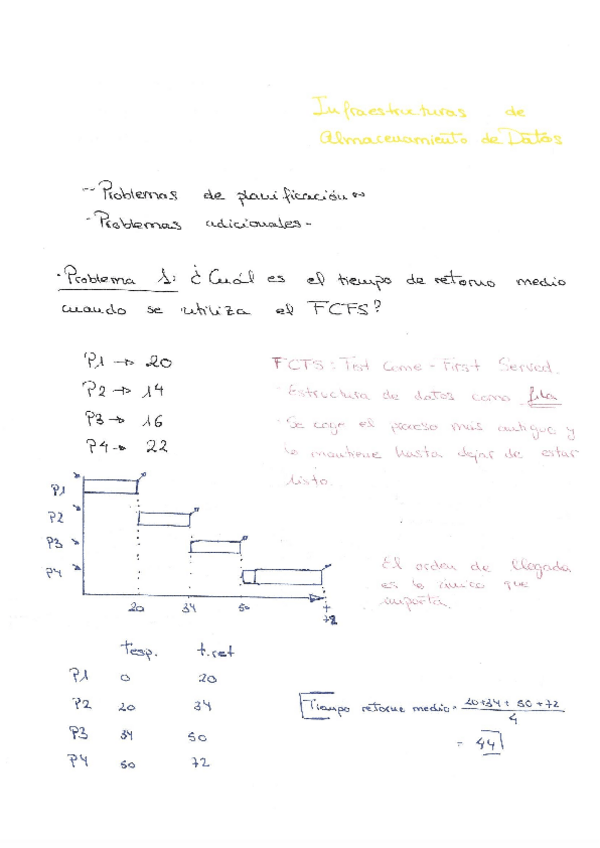 Infraestructuras de
Almacenamiento de Datos
-- Problemas de planificación ~
- Problemas adicionales -
· Problema 1: ¿Cuál es el tiempo de retorno medio
cuando se utiliza el FCFS?
P1 → 20
P2 → 14
P3 → 16
P4 → 22
FCFS: First Come - First Served.
- Estructura de datos como fila
- Se coge el proceso más antiguo y
lo mantiene hasta dejar de estar
listo.
P1
P2
P3
P4
20 34 50 72
El orden de llegada
es lo único que
importa.
Tesp. t.ret
P1 0 20
P2 20 34
P3 34 50
P4 50 72
Tiempo retorno medio = 20+34+50+72
4
= 44